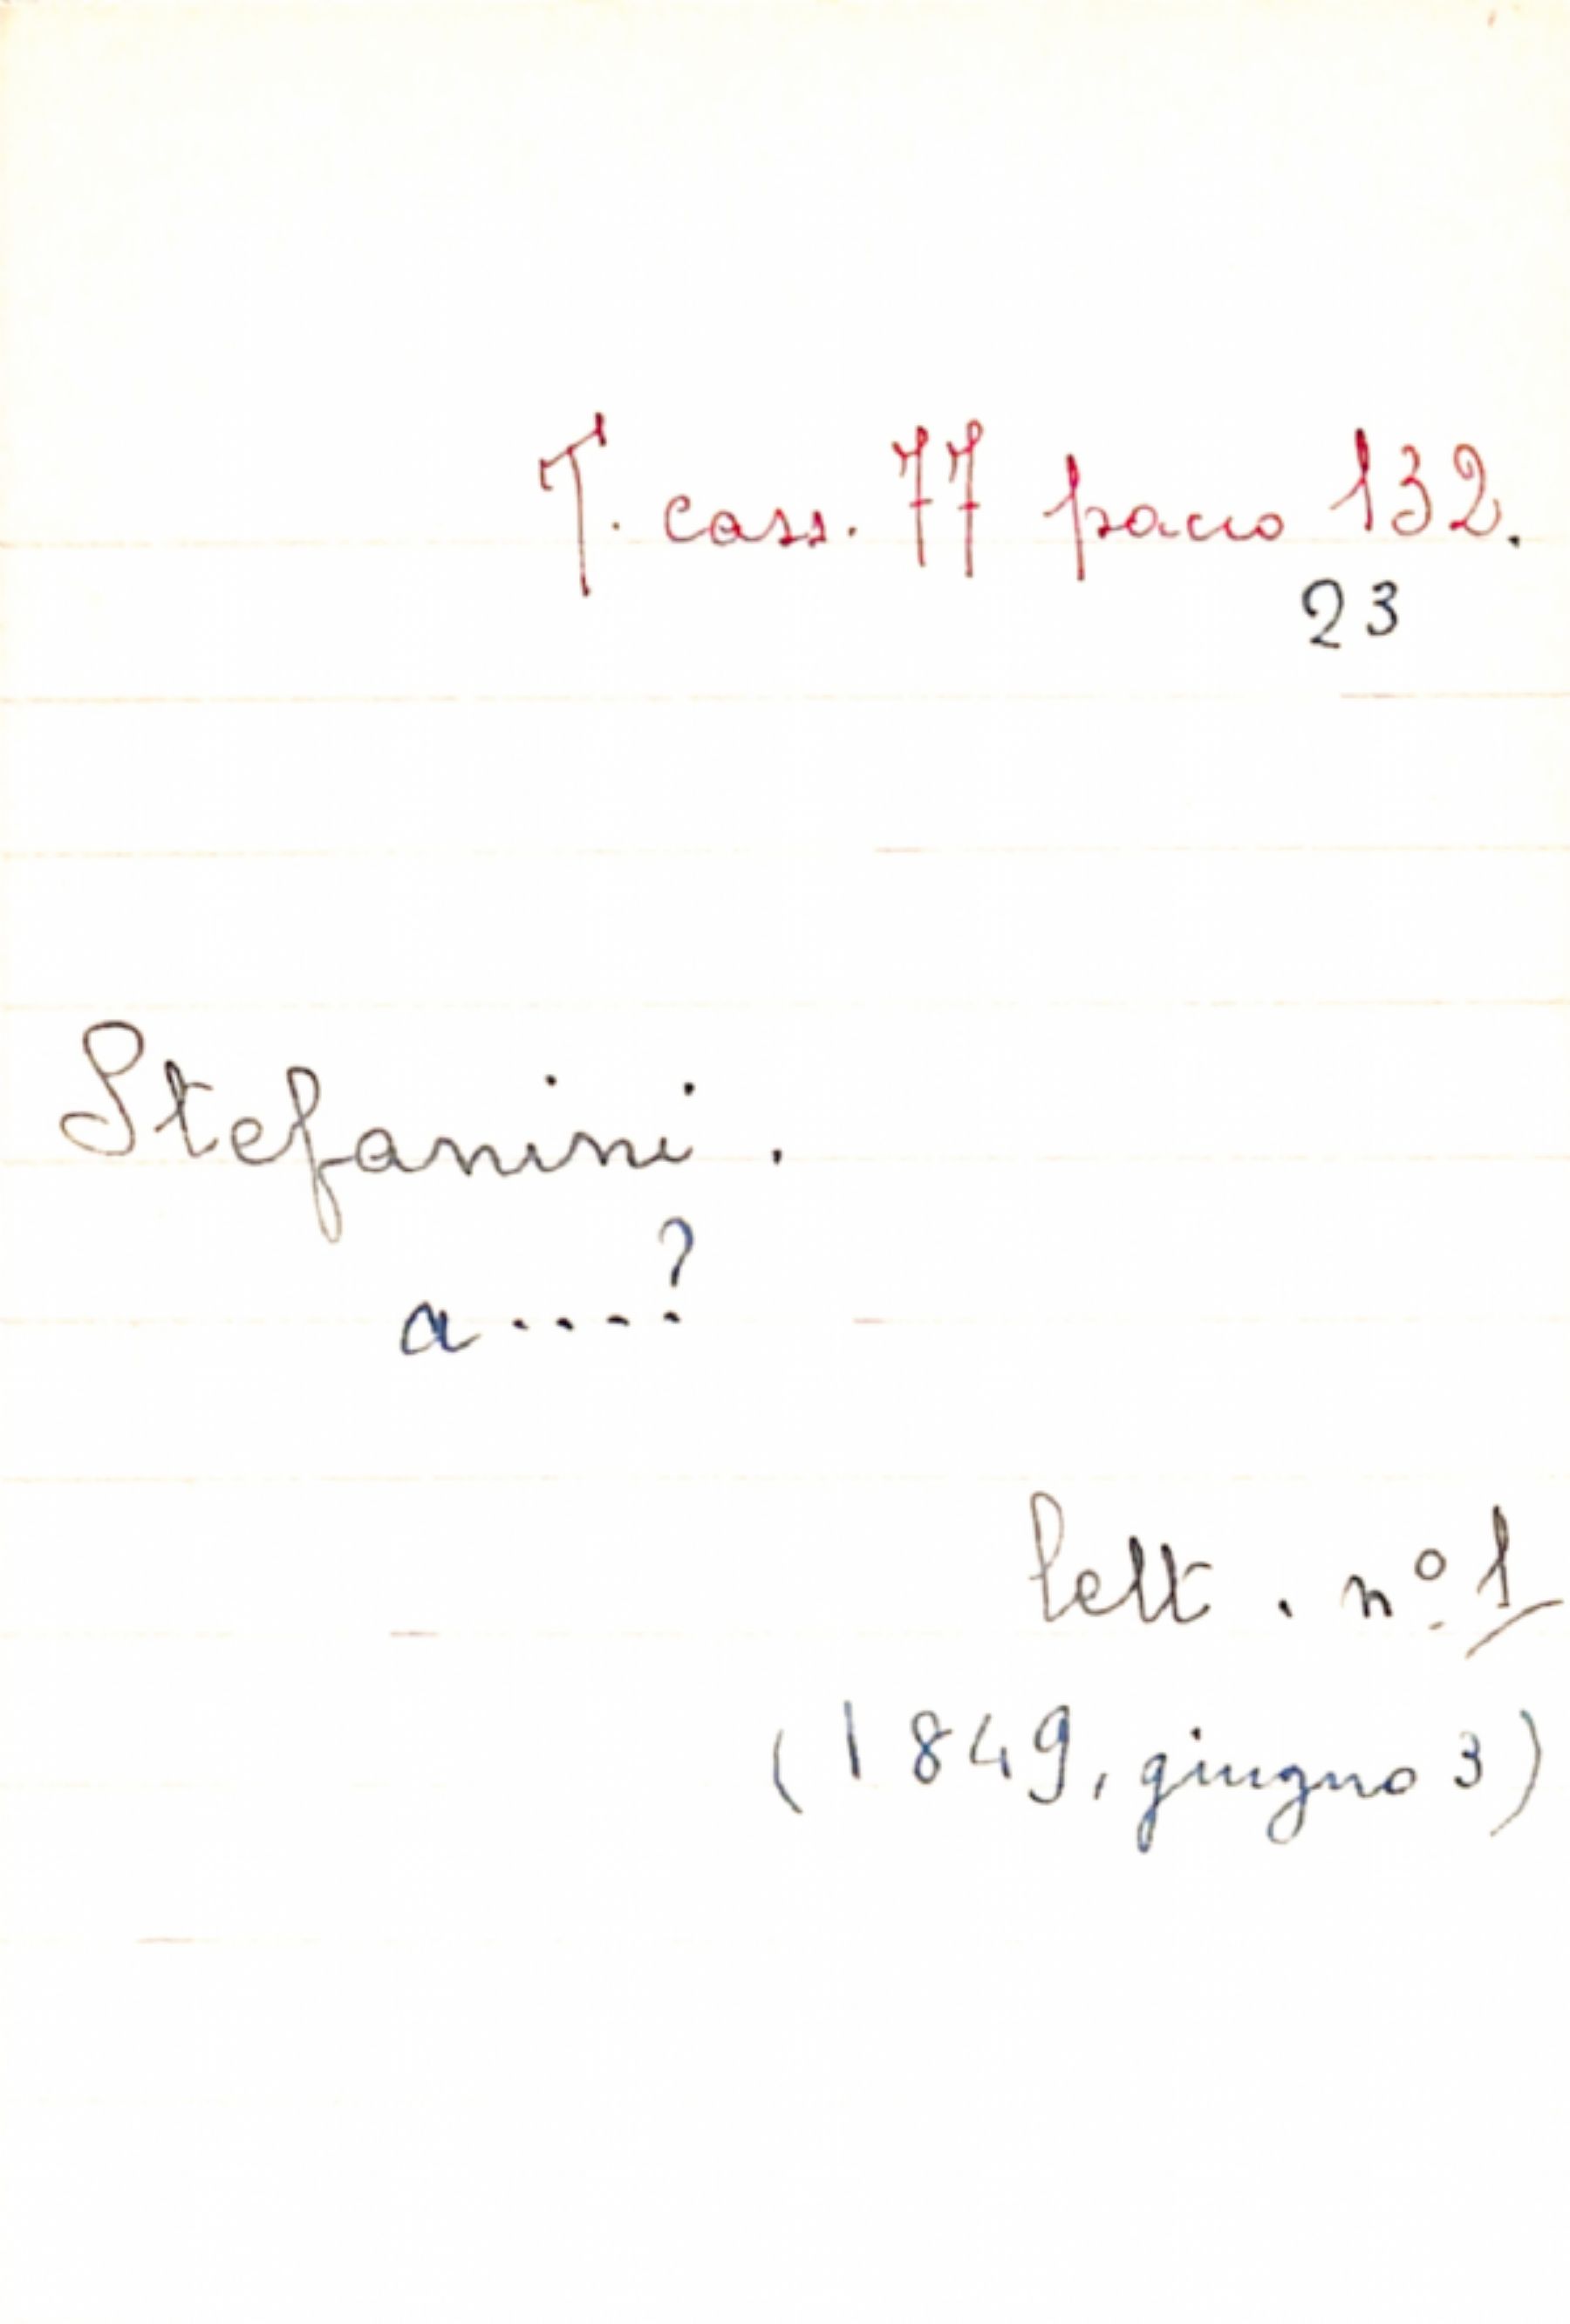 T. cass. 77 pacco 132.
23
Stefanini.
a....?
lett. nº 1
(1849, giugno 3)